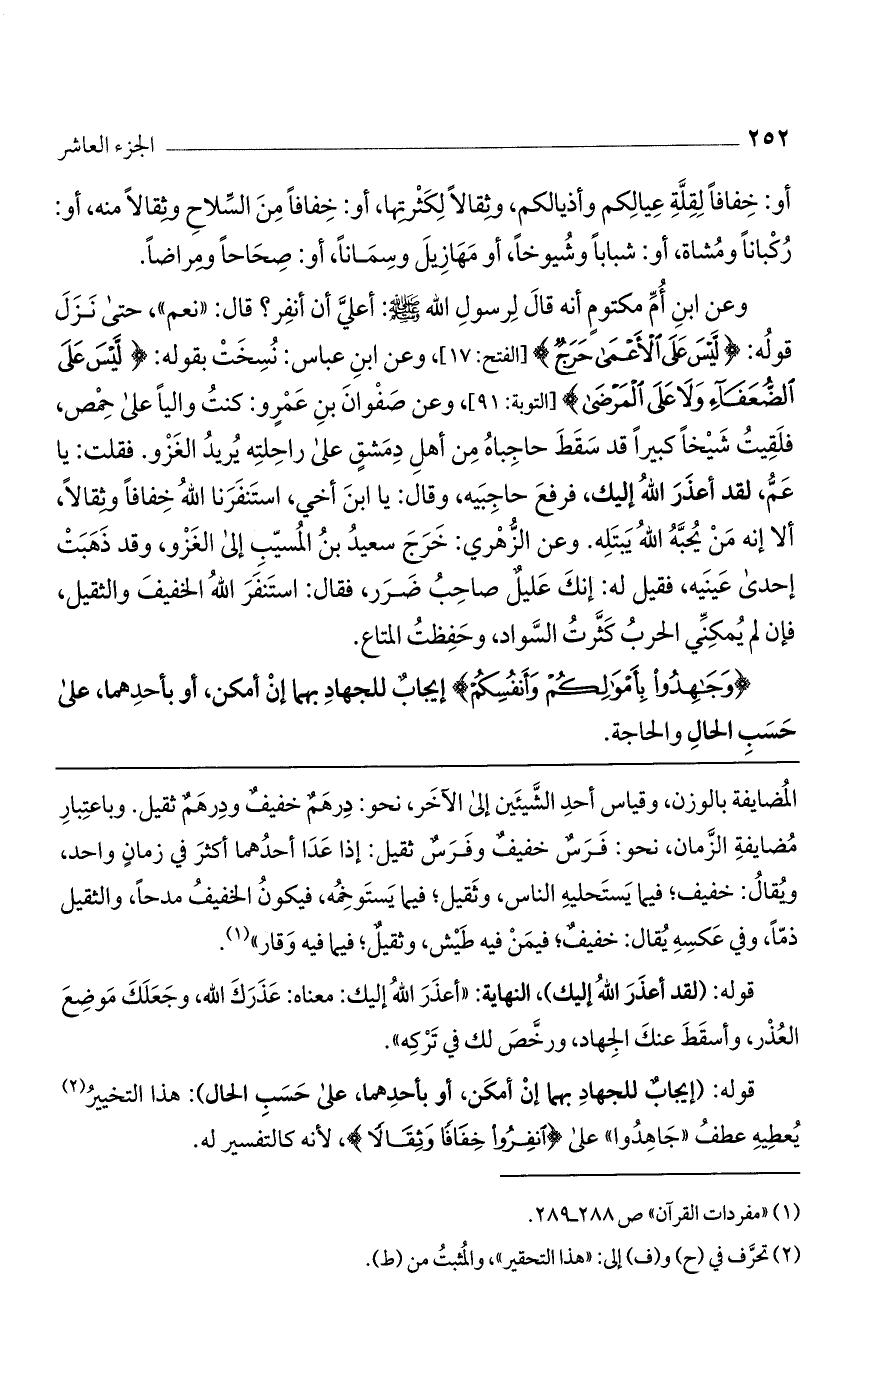 ٢٥٢ الجزء العاشر
أو: خِفافاً لِقِلَّةِ عِيالِكم وأذيالكم، وثِقالاً لِكَثْرتِها، أو: خِفافاً مِنَ السِّلاحِ وثِقالاً منه، أو:
رُكْباناً ومُشاة، أو: شباباً وشُيوخاً، أو مَهَازِيلَ وسِمَـاناً، أو: صِحَاحاً ومِراضاً.
وعن ابنِ أُمِّ مكتومٍ أنه قالَ لِرسولِ الله ﷺ: أعليَّ أن أنفِر؟ قال: «نعم»، حتىٰ نَـزَلَ
قولُه: ﴿ لَّيْسَ عَلَى ٱلْأَعْمَىٰ حَرَجٌ ﴾ [الفتح: ١٧]، وعن ابنِ عباس: نُسِخَتْ بقوله: ﴿ لَّيْسَ عَلَى
ٱلضُّعَفَآءِ وَلَا عَلَى ٱلْمَرْضَىٰ ﴾ [التوبة: ٩١]، وعن صَفْوانَ بنِ عَمْرٍو: كنتُ والياً علىٰ حِمْص،
فلَقِيتُ شَيْخاً كبيراً قد سَقَطَ حاجِباهُ مِن أهلِ دِمَشقٍ علىٰ راحِلتِه يُريدُ الغَزْو. فقلت: يا
عَمُّ، لقد أعذَرَ اللهُ إليك، فرفعَ حاجِبَيه، وقال: يا ابنَ أخي، استَنفَرَنا اللهُ خِفافاً وثِقالاً،
ألا إنه مَنْ يُحبَّهُ اللهُ يَبتَلِه. وعن الزُّهْري: خَرَجَ سعيدُ بنُ المُسيّبِ إلىٰ الغَزْو، وقد ذَهَبَتْ
إحدىٰ عَينَيه، فقيل له: إنكَ عَليلٌ صاحِبُ ضَـرَر، فقال: استَنفَرَ اللهُ الخفيفَ والثقيل،
فإن لم يُمكِنِّي الحربُ كَثَّرتُ السَّواد، وحَفِظتُ المتاع.
﴿وَجَـٰهِدُوا۟ بِأَمْوَٰلِكُمْ وَأَنفُسِكُمْ﴾ إيجابٌ للجهادِ بهما إنْ أمكن، أو بأحدِهما، علىٰ
حَسَبِ الحالِ والحاجة.
المُضايفة بالوزن، وقياس أحدِ الشَّيئَين إلىٰ الآخَر، نحو: دِرهَمٌ خفيفٌ ودِرهَمٌ ثقيل. وباعتِبارِ
مُضايفةِ الزَّمان، نحو: فَـرَسٌ خفيفٌ وفَـرَسٌ ثقيل: إذا عَدَا أحدُهما أكثرَ في زمانٍ واحد،
ويُقالُ: خفيف؛ فيما يَستَحليهِ الناس، وثَقيل؛ فيما يَستَوخِمُه، فيكونُ الخفيفُ مدحاً، والثقيل
ذمّاً، وفي عَكسِهِ يُقال: خفيفٌ؛ فيمَنْ فيه طَيْش، وثقيلٌ؛ فيما فيه وَقار»(١).
قوله: (لقد أعذَرَ اللهُ إليك)، النهاية: «أعذَرَ اللهُ إليك: معناه: عَذَرَكَ الله، وجَعَلَكَ مَوضِعَ
العُذْر، وأسقَطَ عنكَ الجِهاد، ورخَّصَ لك في تَرْكِه».
قوله: (إيجابٌ للجهادِ بهما إنْ أمكَن، أو بأحدِهما، علىٰ حَسَبِ الحال): هذا التخييرُ(٢)
يُعطِيهِ عطفُ «جَاهِدُوا» علىٰ ﴿ٱنفِرُوا۟ خِفَافًا وَثِقَـالًا ﴾، لأنه كالتفسير له.
(١) «مفردات القرآن» ص ٢٨٨ـ٢٨٩.
(٢) تحرَّف في (ح) و(ف) إلى: «هذا التحقير»، والمُثبتُ من (ط).